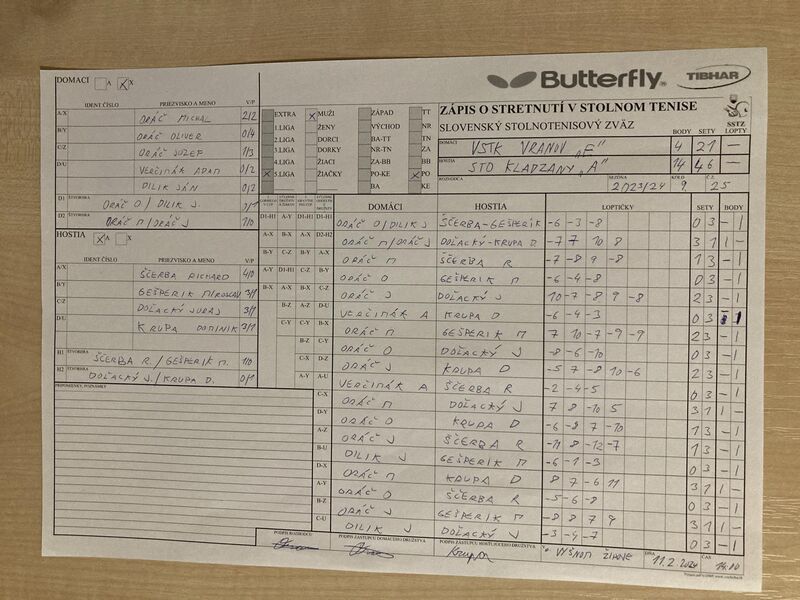 DOMACI A X
Butterfly
TIBHAR
IDENT.ČÍSLO PRIEZVISKO A MENO V/P
A/X ORÁČ MICHAL 2/2
B/Y ORÁČ OLIVER 0/4
C/Z ORÁČ JOZEF 1/3
D/U VERČIMÁK ADAM 0/2
DILIK JÁN 0/2
D1 ŠTVORHRA ORÁČ O / DILIK J. 0/1
D2 ŠTVORHRA ORÁČ M / ORÁČ J 1/0
EXTRA X MUŽI ZÁPAD TT
1.LIGA ŽENY VÝCHOD NR
2.LIGA DORCI BA-TT TN
3.LIGA DORKY NR-TN ZA
4.LIGA ŽIACI ZA-BB BB
X 5.LIGA ŽIAČKY PO-KE X PO
BA KE
ZÁPIS O STRETNUTÍ V STOLNOM TENISE
SLOVENSKÝ STOLNOTENISOVÝ ZVÄZ
SSTZ
BODY SETY LOPTY
DOMÁCI VSTK VRANOV "F" 4 21 -
HOSTIA STO KLADZANY "A" 14 46 -
ROZHODCA SEZÓNA 2023/24 KOLO 9. Č.Z. 25
HOSTIA A X
IDENT.ČÍSLO PRIEZVISKO A MENO V/P
A/X ŠČERBA RICHARD 4/0
B/Y GEŠPERIK MIROSLAV 3/1
C/Z DOĽACKÝ JURAJ 3/1
D/U KRUPA DOMINIK 3/1
H1 ŠTVORHRA ŠČERBA R. / GEŠPERIK M. 1/0
H2 ŠTVORHRA DOĽACKÝ J. / KRUPA D. 0/1
PRIPOMIENKY, POZNÁMKY
DOMÁCI HOSTIA LOPTIČKY SETY BODY
D1-H1 A-Y D1-H1 D1-H1 ORÁČ O / DILIK J ŠČERBA-GEŠPERIK -6 -3 -8 0 3 - 1
A-X B-X A-X D2-H2 ORÁČ M / ORÁČ J DOĽACKÝ-KRUPA D. -7 7 10 8 3 1 1 -
B-Y C-Z B-Y A-X ORÁČ M ŠČERBA R -7 -8 9 -8 1 3 - 1
A-Y D1-H1 C-Z B-Y ORÁČ O GEŠPERIK M -6 -4 -8 0 3 - 1
B-X A-X B-X C-Z ORÁČ J DOĽACKÝ J 10 -7 -8 9 -8 2 3 - 1
B-Z A-Z D-U VERČIMÁK A KRUPA D -6 -4 -3 0 3 1
C-Y C-Y B-X ORÁČ M GEŠPERIK M 7 10 -7 -9 -9 2 3 - 1
B-Z C-Y ORÁČ O DOĽACKÝ J -8 -6 -10 0 3 - 1
C-X D-Z ORÁČ J KRUPA D -5 7 -8 10 -6 2 3 - 1
A-Y A-U VERČIMÁK A ŠČERBA R -2 -4 -5 0 3 - 1
C-X ORÁČ M DOĽACKÝ J 7 8 -10 5 3 1 1 -
D-Y ORÁČ O KRUPA D -6 -8 7 -10 1 3 - 1
A-Z ORÁČ J ŠČERBA R -11 8 -12 -7 1 3 - 1
B-U DILIK J GEŠPERIK M -6 -1 -3 0 3 - 1
D-X ORÁČ M KRUPA D 8 7 -6 11 3 1 1 -
A-Y ORÁČ O ŠČERBA R -5 -6 -8 0 3 - 1
B-Z ORÁČ J GEŠPERIK M -8 8 7 9 3 1 1 -
C-U DILIK J DOĽACKÝ J -3 -4 -7 0 3 - 1
PODPIS ROZHODCU PODPIS ZÁSTUPCU DOMÁCEHO DRUŽSTVA PODPIS ZÁSTUPCU HOSŤUJÚCEHO DRUŽSTVA
V VYŠNOM ŽIPOVE DŇA 11.2.2024 ČAS 14:00